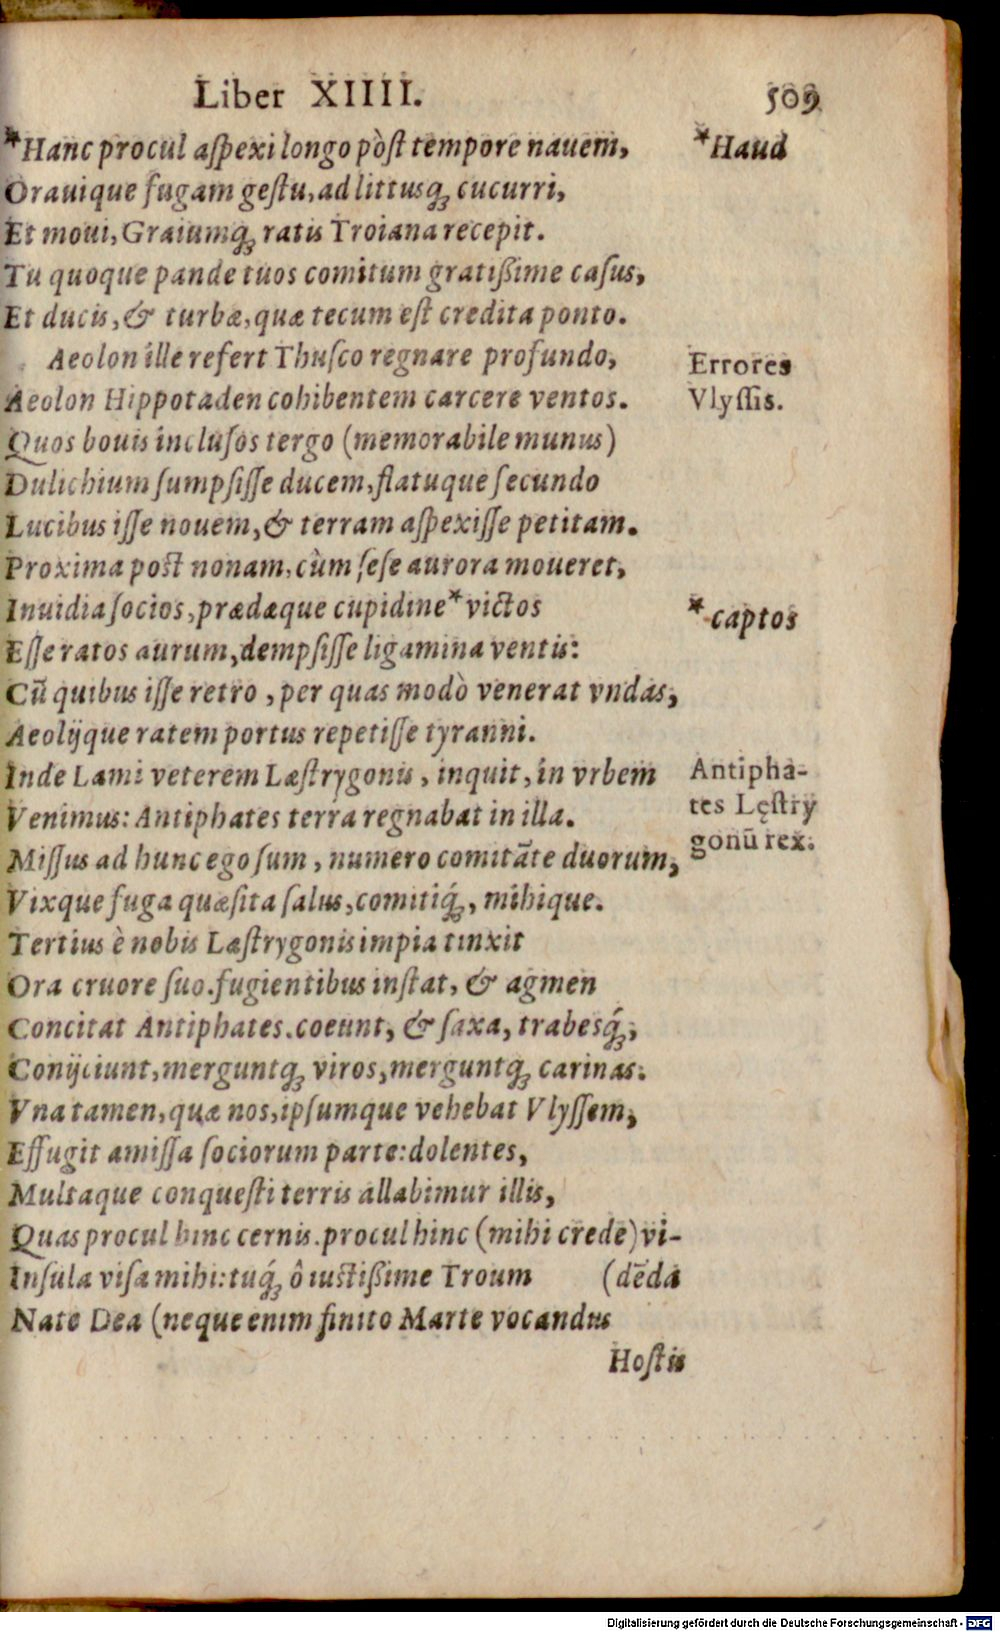 Liber XIIII. 509
*Hanc procul aſpexi longo pòſt tempore nauem, *Haud
Orauique fugam geſtu, ad littusq́; cucurri,
Et moui, Graiumq́; ratis Troiana recepit.
Tu quoque pande tuos comitum gratißime caſus,
Et ducis, & turbæ, quæ tecum eſt credita ponto.
Aeolon ille refert Thuſco regnare profundo, Errores
Aeolon Hippotaden cohibentem carcere ventos. Vlyſſis.
Quos bouis incluſos tergo (memorabile munus)
Dulichium ſumpſiſſe ducem, flatuque ſecundo
Lucibus iſſe nouem, & terram aſpexiſſe petitam.
Proxima poſt nonam, cùm ſeſe aurora moueret,
Inuidia ſocios, prædæque cupidine *victos *captos
Eſſe ratos aurum, dempſiſſe ligamina ventis:
Cū quibus iſſe retro, per quas modò venerat vndas,
Aeolijque ratem portus repetiſſe tyranni.
Inde Lami veterem Læſtrygonis, inquit, in vrbem Antipha-
Venimus: Antiphates terra regnabat in illa. tes Lęſtry
Miſſus ad hunc ego ſum, numero comitāte duorum, gonū rex.
Vixque fuga quæſita ſalus, comitiq́;, mihique.
Tertius è nobis Læſtrygonis impia tinxit
Ora cruore ſuo. fugientibus inſtat, & agmen
Concitat Antiphates. coeunt, & ſaxa, trabesq́;,
Conijciunt, merguntq; viros, merguntq; carinas.
Vna tamen, quæ nos, ipſumque vehebat Vlyſſem,
Effugit amiſſa ſociorum parte: dolentes,
Multaque conqueſti terris allabimur illis,
Quas procul hinc cernis. procul hinc (mihi crede) vi-
Inſula viſa mihi: tuq́; ô iuſtißime Troum (dēda
Nate Dea (neque enim finito Marte vocandus
Hoſtis
Digitalisierung gefördert durch die Deutsche Forschungsgemeinschaft - DFG